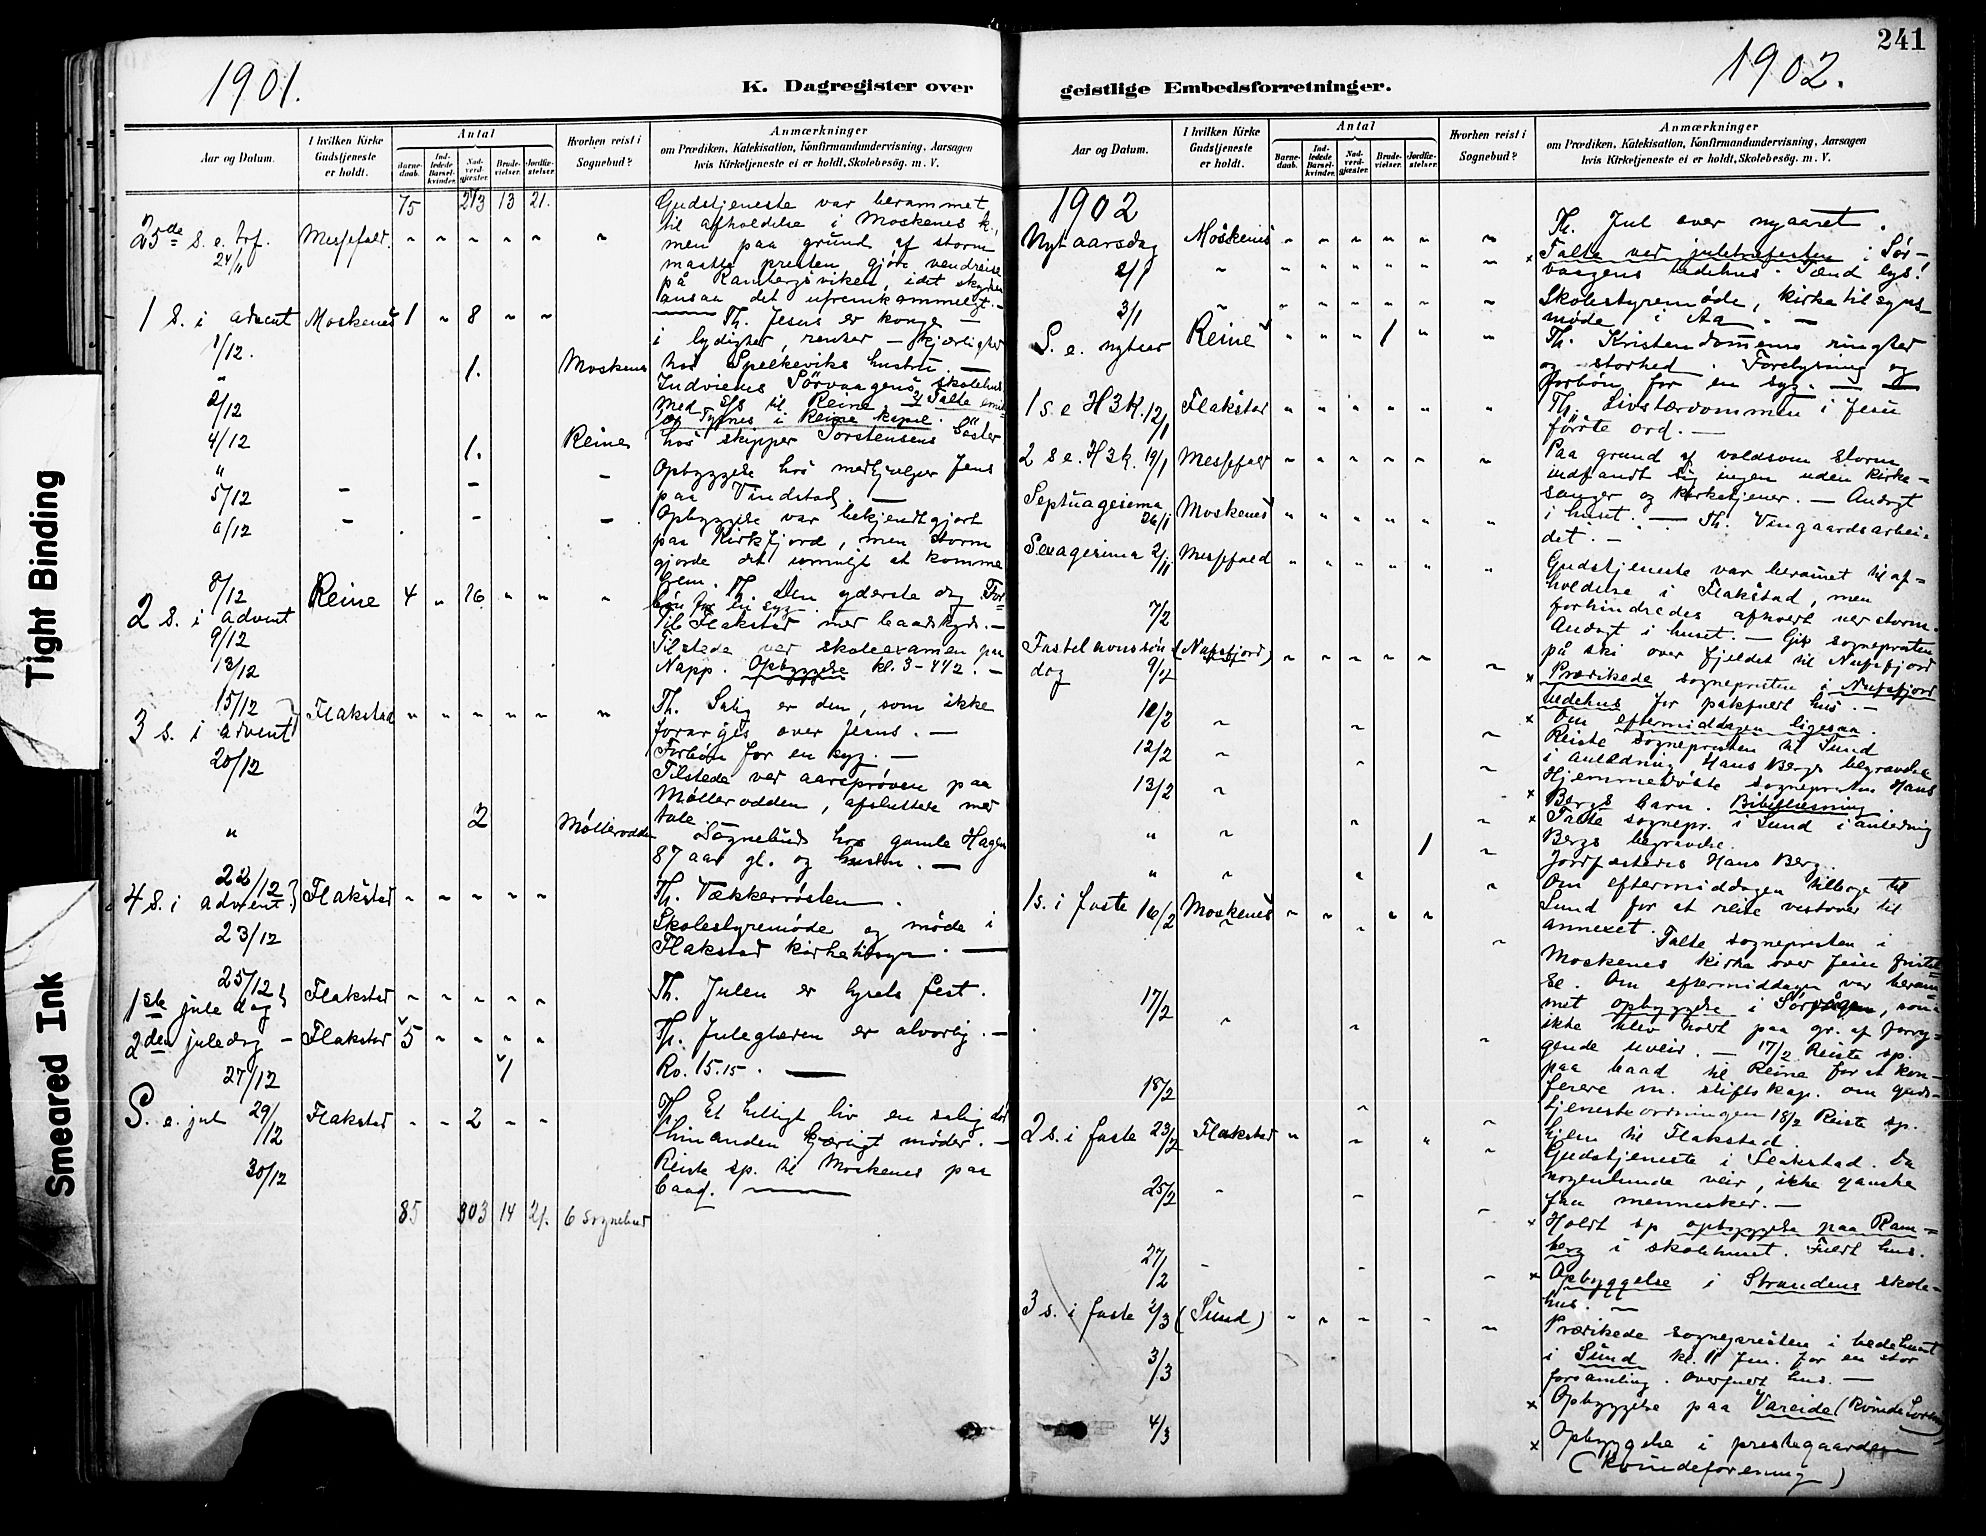 241
1901.
1902.
K. Dagregister over
geistlige Embedsforretninger.
Tight Binding
Smeared Ink
Aar og Datum.
I hvilken Kirke
Gudstjeneste
er holdt.
Antal
Barne-
daab.
Ind-
ledede
Barsel-
kvinder.
Nad-
verd-
gjæster.
Brude-
vielser.
Jordfæ-
stelser.
Hvorhen reist i
Sognebud?
Anmærkninger
om Prædiken, Katekisation, Konfirmandundervisning, Aarsagen
hvis Kirketjeneste ei er holdt, Skolebesøg. m. V.
75 213 13 21.
Gudstjeneste var berammet
25de S. e. tref. Messefald. " " " " " "
til afholdelse i Moskenes k.,
24/11
men paa grund af storm
maatte presten gjøre vendreise
på Rambergsviken, idet skydsen
ansaa det ufremkommeligt. -
1 S. i advent Moskenes 1 " 8 " "
Th. Jesus er konge -
1/12.
i lydighed, renhed - kjærlighed
" 1. Moskenes hos Spelkeviks hustru. -
2/12
Indviedes Sörvaagens skolehus
Med s/s til Reine. Talte
i Reine kapel.
4/12 1. Reine hos skipper Torstensens Söster
"
Opbyggelse hos medhjælper Jens
5/12 - - -
paa Vindstad. -
6/12 - - -
Opbyggelse var bekjendtgjort
paa Kirkfjord, men storm
gjorde det umuligt at komme
frem.
8/12
2 S. i advent Reine 4 " 16 " " "
Th. Den yderste dag For-
bön for en syg.
9/12
Til Flakstad med baadskyds. -
13/12
Tilstede ved skoleexamen paa
Napp. Opbyggelse kl. 3-4 1/2. -
15/12
3 s. i advent } Flakstad " " " " " "
Th. Salig er den, som ikke
forarges over Jesus. -
Forbön for en syg. -
20/12
Tilstede ved aarsprøven paa
Møllerodden, afsluttede med
tale.
" 2 Møllerodden
Sognebud hos gamle Hagen
87 aar gl. og hustru. -
22/12
4 S. i advent } Flakstad " " " " "
Th. Vækkerrøsten.
23/12
Skolestyremøde og møde i
Flakstad kirketilsyn. -
25/12
1ste jule dag } Flakstad " " " " "
Th. Julen er lysets fest.
2den juledag - Flakstad 5 " " " "
Th. Juleglæden er alvorlig. -
27/12 1
Ro. 15.15. -
S. e. jul 29/12 Flakstad " " 2 " "
Th. Et helligt liv en salig död
hinanden kjærligt møder. -
30/12
Reiste sp. til Moskenes paa
baad. -
85 303 14 21. 6 sognebud
Aar og Datum.
I hvilken Kirke
Gudstjeneste
er holdt.
Antal
Barne-
daab.
Ind-
ledede
Barsel-
kvinder.
Nad-
verd-
gjæster.
Brude-
vielser.
Jordfæ-
stelser.
Hvorhen reist i
Sognebud?
Anmærkninger
om Prædiken, Katekisation, Konfirmandundervisning, Aarsagen
hvis Kirketjeneste ei er holdt, Skolebesøg. m. V.
1902
Nytaarsdag Moskenes " " " " " "
Th. Jul over nyaaret.
2/1 " " " " " " "
x Talte ved juletræfesten i Sör-
vaagens bedehus. Tænd lys!
3/1 " " " " " " "
Skolestyremøde, kirketilsyns-
møde i Aa. -
S. e. nytaar Reine " " " 1 " "
Th. Kristendommens ringhed
og storhed. Forelysning og
forbön for en syg. -
1 s. e H3K. 12/1 Flakstad " " " " " "
Th. Livslærdommen i Jesu
förste ord. -
2 s e. H3k. 19/1 Messefald " " " " " "
Paa grund af voldsom storm
indfandt sig ingen uden kirke-
sanger og kirketjener. - Andagt
i huset. -
Septuagesima 26/1 Moskenes " " " " " "
Th. Vingaardsarbei-
det. -
Sexagesima 2/11 Messefald " " " " " "
Gudstjeneste var beramet til af-
holdelse i Flakstad, men
forhindredes afholdt ved storm.
Andagt i huset. -
7/2
Gik sognepresten
på ski over fjeldet til Nusfjord
Fastelavnssön- (Nusfjord) " " " " " "
dag 9/2
x Prædikede sognepresten i Nusfjord
bedehus for pakfuldt hus. -
10/2 " " "
x Om eftermiddagen ligesaa.
12/2 " " "
Reiste sognepresten til Sund
i anledning Hans Bergs begravelse
13/2 " " "
x Hjemmedöbte sognepresten Hans
Bergs barn. Bibellæsning.
" " " "
x Talte sognepr. i Sund i anledning
Bergs begravelse.
" " 1 "
Jordfæstedes Hans Berg.
Om eftermiddagen tilbage til
Sund for at reise vestover til
annexet.
1 s. i faste 16/2 Moskenes " " " " "
Talte sognepresten i
Moskenes kirke over Jesu fristel-
se. Om eftermiddagen var beram-
met opbyggelse i Sörvågen, som
ikke blev holdt paa gr. af forry-
gende uveir. -
17/2 " " "
17/2 Reiste sp.
paa baad til Reine for at kon-
ferere m. stiftskap. om guds-
tjenesteordningen
18/2 " "
18/2 Reiste sp.
hjem til Flakstad.
2 s. i faste 23/2 Flakstad " " " "
Gudstjeneste i Flakstad. Da
nogenlunde veir, ikke ganske
faa mennesker. -
25/2 " " "
x Holdt sp opbyggelse paa Ram-
berg i skolehuset. Fuldt hus.
27/2 " " "
x Opbyggelse i Strandens skole-
hus. -
3 s. i faste 2/3 (Sund) " " " " "
Prædikede sognepresten i bedehuset
i Sund kl. 11 fm. for en stor
forsamling. Overfuldt hus. -
3/3
x Opbyggelse paa Vareide (Kvinde
4/3
x Opbyggelse i prestegaarden
(Kvindeforening)